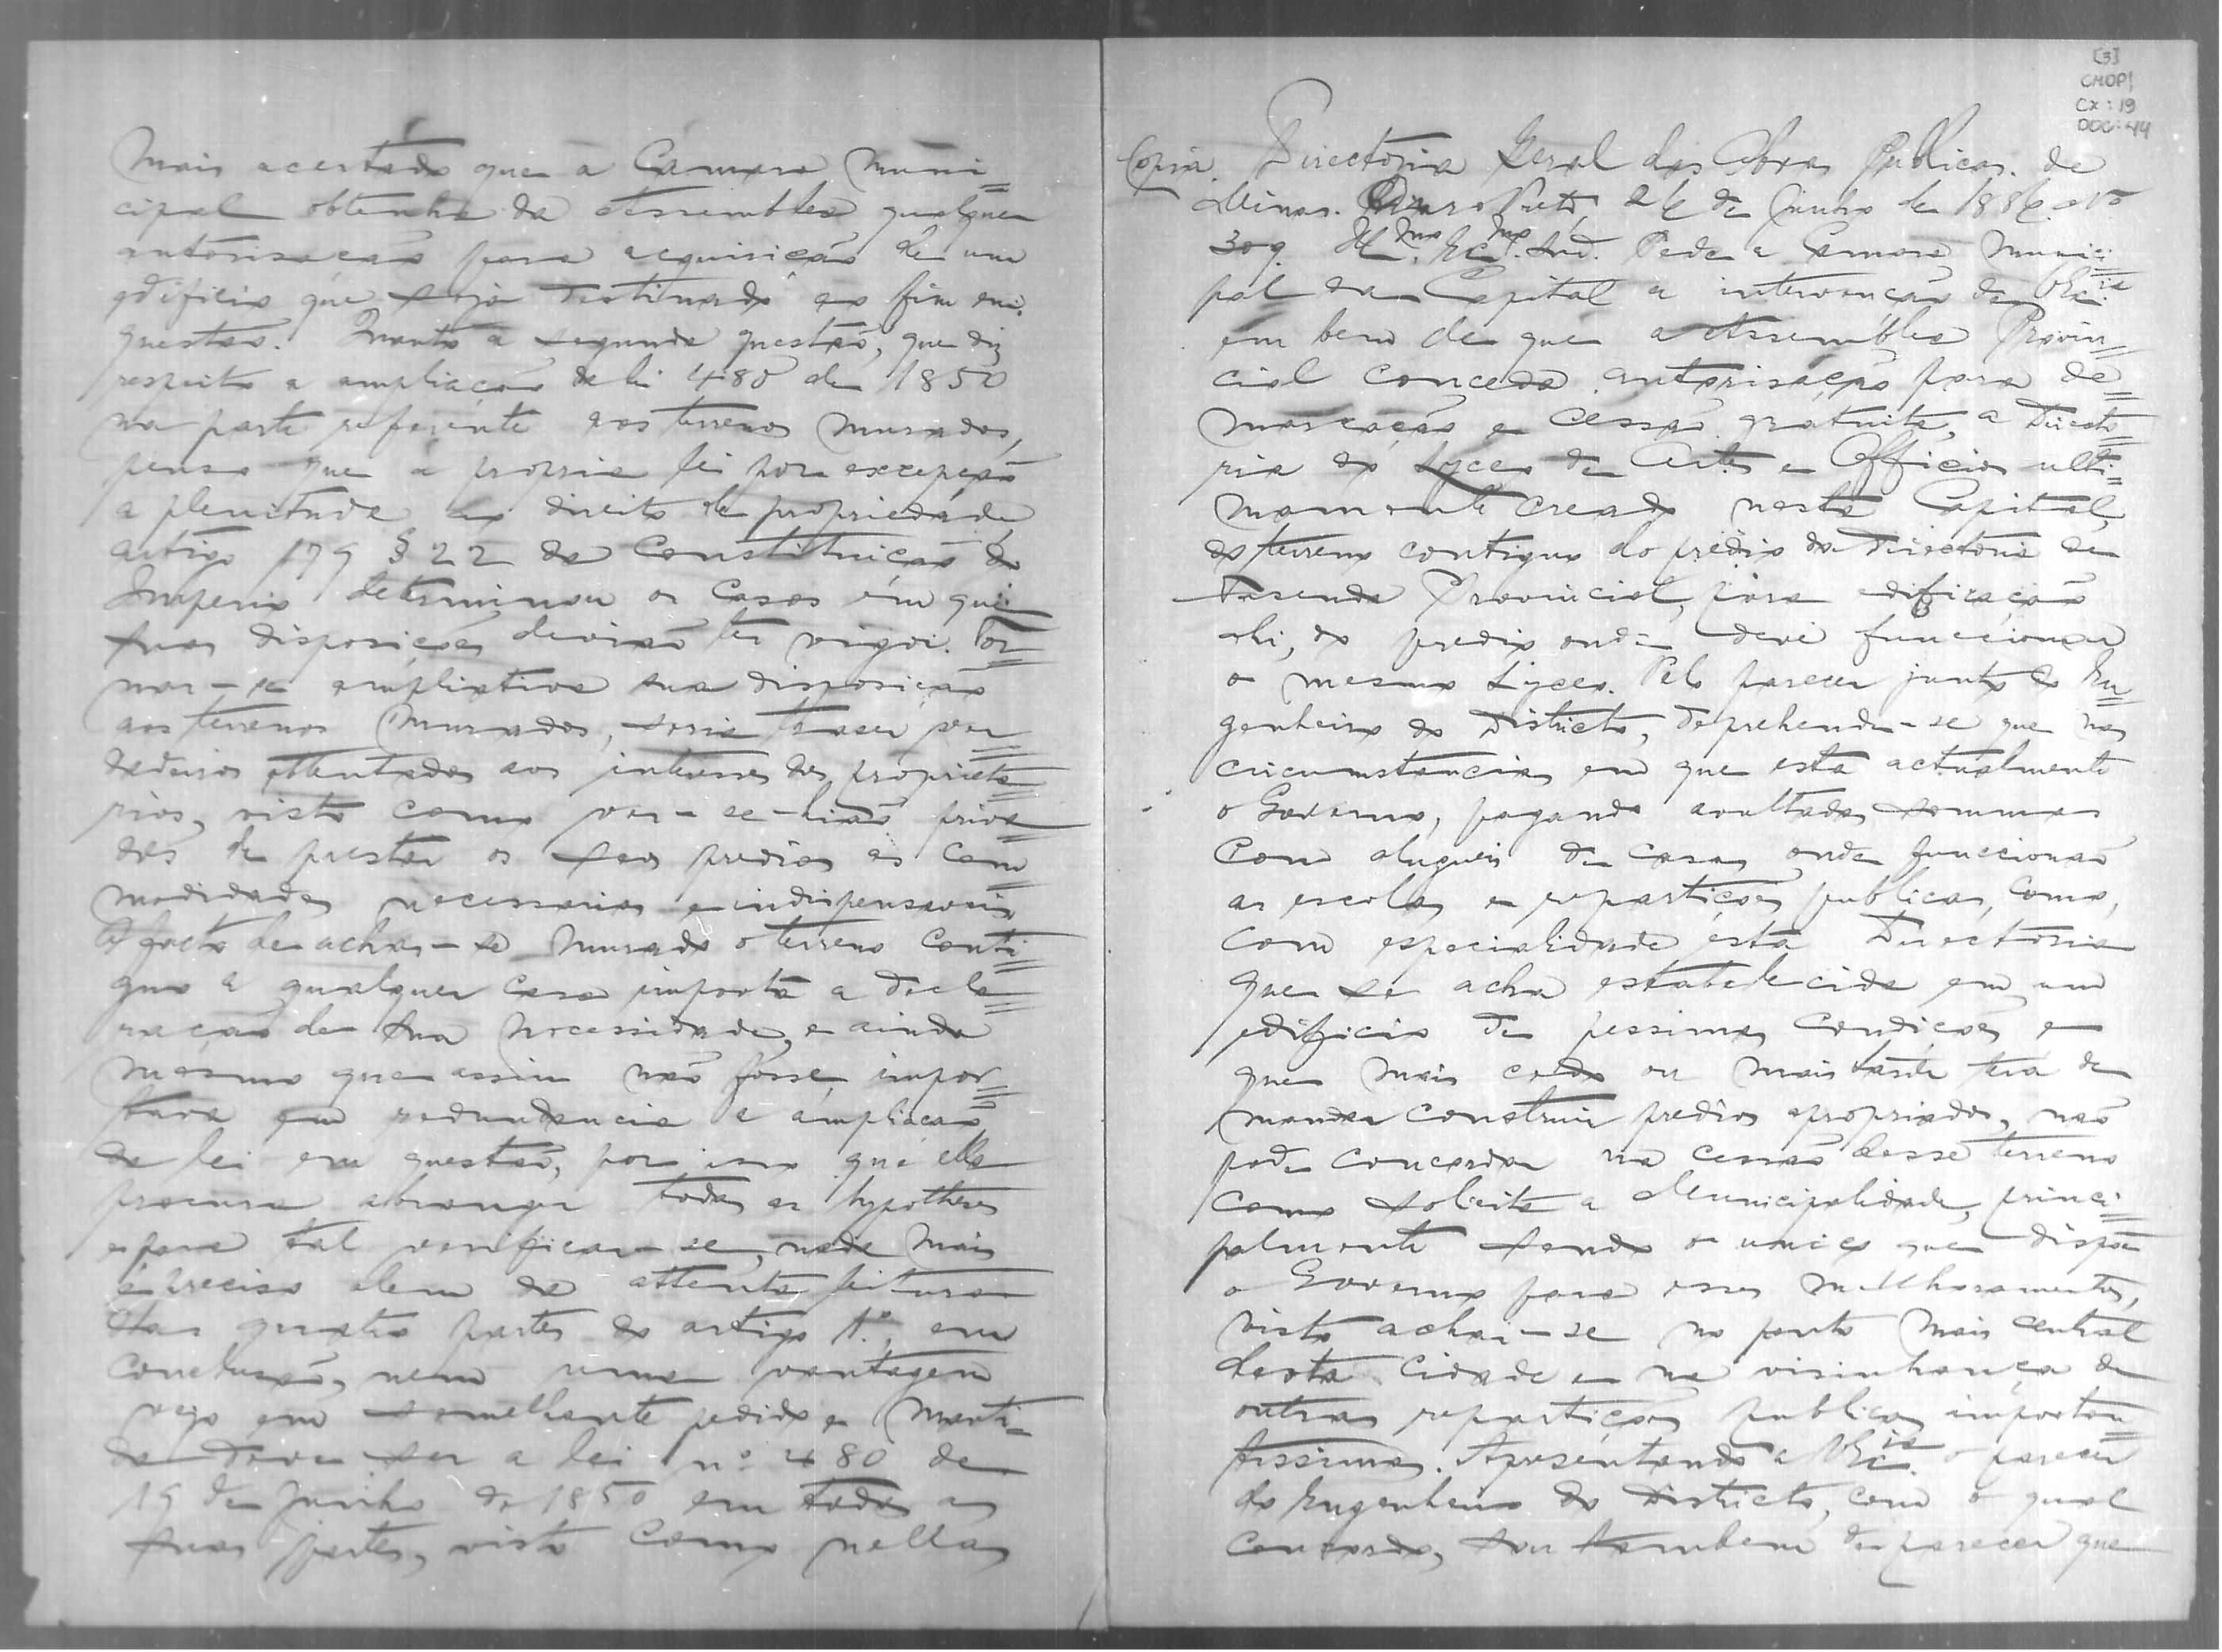 mais acertado que a Camara Muni=
cipal obtenha da Assembléa qualquer
autorisação para acquisição de um
edificio que seja destinado ao fim em
questão. Quanto a segunda questão, que diz
respeito a ampliação da lei 480 de 1850
na parte referente aos terrenos murados,
penso que a propria lei por excepção
a plenitude do direito de propriedade
artigo 179 § 22 da Constituição do
Imperio determinou os casos em que
suas disposições devião ter vigor. Tor=
nar-se ampliativa sua disposição
aos terrenos murados, seria trazer ver=
dadeiros attentados aos interesses dos proprieta=
rios, visto como ver-se-hião priva=
dos de prestar os seus predios as com=
modidades necessarias e indispensaveis
O facto de achar-se murado o terreno conti=
guo a qualquer casa importa a decla=
ração de sua necessidade, e ainda
mesmo que assim não fosse, impor=
tava em redundancia a ampliação
da lei em questão, por isso que ella
procura abranger todas as hypotheses
e para tal verificar-se, nada mais
é preciso alem da attenta leitura
das quatro partes do artigo 1º, em
conclusão, nem uma vantagem
vejo em semelhante pedido e manti=
da deve ser a lei nº 480 de
19 de Junho de 1850 em todas as
suas partes, visto como nellas
[3]
CMOP|
CX: 19
DOC: 44
Copia. Directoria Geral das Obras Publicas de
Minas. Ouro Preto, 26 de Junho de 1886. nº
309. Illmo. Exmo. Snr. Pede a Camara Munici=
pal da Capital a intervenção de VExcia
em bem de que a Assembléa Provin=
cial conceda autorisação para de=
marcação e cessão gratuita, a Directo=
ria do Lyceu de Artes e Officios ulti=
mamente creado nesta Capital,
do terreno contiguo ao prédio da Directoria de
Fasenda Provincial, para edificação
ahi, do predio onde deve funccionar
o mesmo Lyceu. Pelo parecer junto do En=
genheiro do Districto, deprehende-se que nas
circumstancias em que está actualmente
o Governo, pagando avultadas sommas
com alugueis de casas onde funccionão
as escolas e repartições publicas, como,
com especialidade esta Directoria
que se acha estabelecida em um
edificio de pessimas condições e
que mais cedo ou mais tarde terá de
mandar construir predios apropriados, não
pode concordar na cessão desse terreno
como solicita a Municipalidade, princi=
palmente sendo o unico que dispõe
o Governo para esses melhoramentos,
visto achar-se no ponto mais central
desta Cidade e na visinhança de
outras repartições publicas importan=
tissimas. Apresentando a VExcia. o parecer
do Engenheiro do Districto, com o qual
concordo, sou tambem de parecer que